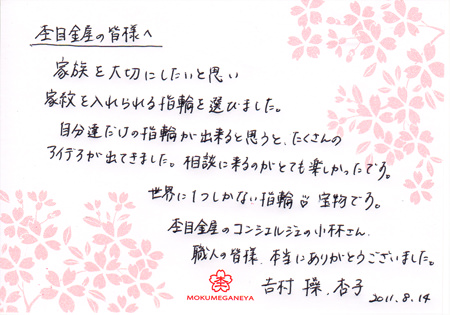 杢目金屋の皆様へ
家族を大切にしたいと思い
家紋を入れられる指輪を選びました。
自分達だけの指輪が出来ると思うと、たくさんの
アイデアが出てきました。相談に来るのがとても楽しかったです。
世界に1つしかない指輪♡宝物です。
杢目金屋のコンシェルジェの小林さん、
職人の皆様、本当にありがとうございました。
吉村 操、杏子
2011.8.14
MOKUMEGANEYA